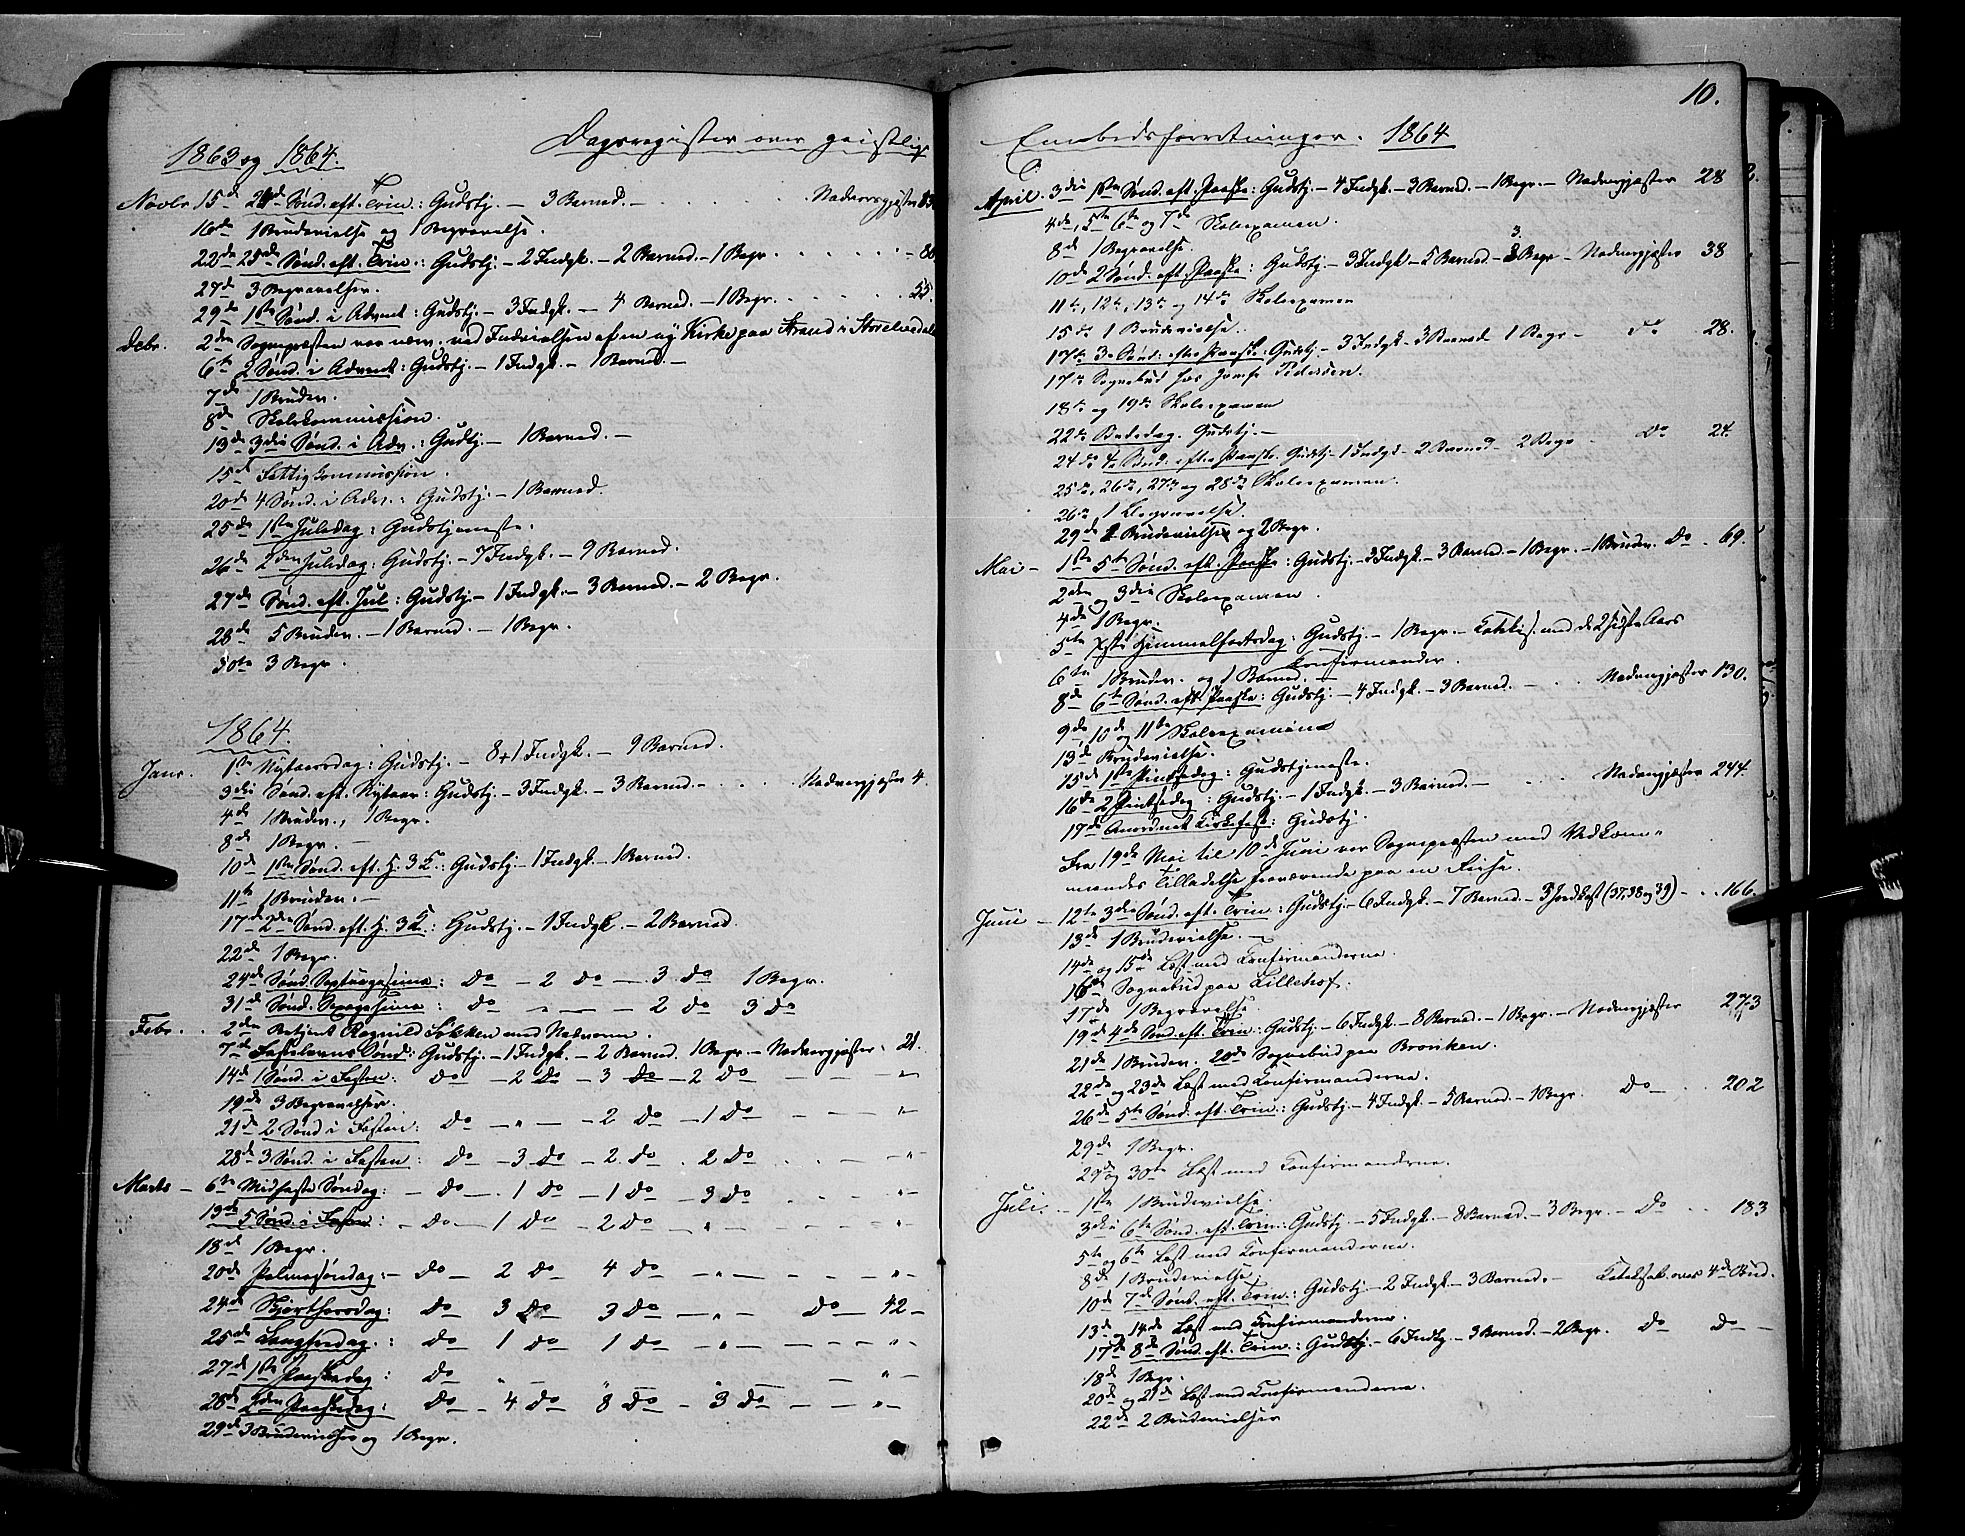 1863 og 1864. Dagsregister over geistlige
Novbr 15de 24de Sønd. eft. Trin.: Gudstj. — 3 Barned. — Nadversgjæster
16de 1 Brudevielse og 1 Begravelse.
22de 25de Sønd. eft. Trin.: Gudstj. — 2 Indgk. — 2 Barned. — 1 Begr.
27de 3 Begravelser.
29de 1ste Sønd. i Advent: Gudstj. — 3 Indgk. — 4 Barned. — 1 Begr. 55.
Debr. 2den Sognepræsten var ved Indvielsen af en ny Kirke paa Strand i Storelvedalen
6te 2 Sønd. i Advent: Gudstj. — 1 Indgk. — 1 Barned. —
7de 1 Brudev.
8de Skolekommission.
13de 3die Sønd. i Adv.: Gudtj. — 1 Barned. —
15de Fattigkommission.
20de 4 Sønd. i Adv.: Gudstj. — 1 Barned.
25de 1ste Juledag: Gudstjeneste.
26de 2den Juledag: Gudstj. — 7 Indgk. — 9 Barned.
27de Sønd. eft. Jul: Gudstj. — 1 Indgk. — 3 Barned. — 2 Begr.
28de 5 Brudev. — 1 Barned. — 1 Begr.
30te 3 Begr.
1864.
Janr. 1ste Nytaarsdag: Gudstj. — 8+1 Indgk. — 9 Barned.
3die Sønd. eft. Nytaar: Gudstj. — 3 Indgk. — 3 Barned. — Nadvergjæster 4.
4de 1 Brudev., 1 Begr.
8de 1 Begr. —
10de 1ste Sønd. eft. H. 3 K.: Gudstj. — 1 Indgk. — 1 Barned.
11te 1 Brudev. —
17de 2den Sønd. eft. H. 3 K.: Gudstj. — 1 Indgk. — 2 Barned.
22de 1 Begr.
24de Sønd. Septuagesima: Do — 2 Do — 3 Do 1 Begr.
31te Sønd. Sexagesima: Do — „ — 2 Do 3 Do
Febr. 2den Betjent Ragnild Løkken med Nadveren.
7de Fastelavns Sønd: Gudstj. — 1 Indgk. — 2 Barned. 1 Begr — Nadvergjæster 21.
14de 1 Sønd. i Fasten: Do — 2 Do — 3 Do — 2 Do — „
19de 3 Begravelser.
21de 2 Sønd i Fasten: Do — „ — 2 Do — 1 Do — „
28de 3 Sønd. i Fasten: Do — 3 Do — 2 Do. 2 Do — „
Marts — 6te Midfaste Søndag: — Do —. 1 Do — 1 Do — 3 Do — „
13de 5 Sønd. i Fasten: — Do — 1 Do — 2 Do — „ — „
18de 1 Begr.
20de Palmesøndag: — Do — 2 Do 4 Do — „ — „
24de Skjærthorsdag: Do 3 Do 3 Do — „ Do — 42 —
25de Langfredag: Do 1 Do 1 Do — „ — „
27de 1ste Paaskedag: Do — „ — „ — „
28de 2den Paaskedag: Do — 4 Do 8 Do — 3 Do — „
29de 3 Brudevielser og 1 Begr.
10.
Embedsforretninger. 1864
April. 3die 1ste Sønd. eft. Paaske: Gudstj. — 4 Indgk. — 3 Barned. — 1 Begr. — Nadvergjæster 28
4de, 5te 6te og 7de Skoleexamen.
8de 1 Begravelse.
10de 2 Sønd. eft. Paaske: Gudstj. — 3 Indgk — 5 Barned — 3 Begr — Nadvergjæster 38
11te, 12te, 13de og 14de Skoleexamen
15de 1 Brudevielse.
17de 3de Sønd: efter Paaske: Gudstj — 3 Indgk — 3 Barned 1 Begr — Do 28.
17de Sognebud hos Pedersen.
18de og 19de Skoleexamen
22de Bededag. Gudstj. —
24de 4de Sønd. efter Paaske. Gudstj — 1 Indgk — 2 Barned — 2 Begr Do 24.
25de, 26de, 27de og 28de Skoleexamen.
26de 1 Begravelse.
29de Brudevielse og 2 Begr.
Mai — 1ste 5te Sønd. eft. Paaske: Gudstj. — 3 Indgk. — 3 Barned. — 1 Begr. — 1 Brudev. Do. 69.
2den og 3die Skoleexamen.
4de 1 Begr.
5te Xsti Himmelfartsdag: Gudstj. — 1 Begr. — Katekis. med de 2 sidste Aars
Konfirmander.
6te 1 Brudev. og 1 Barned. —
8de 6te Sønd. eft. Paaske: Gudstj. — 4 Indgk. — 3 Barned. — Nadvergjæster 130.
9de, 10de og 11te Skoleexamen
13de Brudevielse.
15de 1ste Pintsedag: Gudstjeneste.
16de 2 Pintsedag: Gudstj. — 1 Indgk. — 3 Barned. — Nadvergjæster 244.
19de Anordnet Kirkefest: Gudstj.
Fra 19de Mai til 10de Juni var Sognepræsten med Vedkom-
mendes Tilladelse fraværende paa en Reise.
Juni — 12te 3die Sønd. eft. Trin.: Gudstj. — 6 Indgk. — 7 Barned. — 3 Jordkast (37, 38 og 39) — 166.
13de 1 Brudevielse. —
14de og 15de Læst med Konfirmanderne.
16de Sognebud paa Lillehof.
17de 1 Begravelse.
19de 4de Sønd. eft. Trin: Gudstj — 6 Indgk. — 8 Barned. — 1 Begr. — Nadvergjæster 273
21de 1 Brudev. 20de Sognebud paa Broviken.
22de og 23de Læst med Konfirmanderne.
26de 5te Sønd. eft. Trin.: Gudstj. — 4 Indgk. — 5 Barned. — 1 Begr. Do — 202
29de 1 Begr.
29de og 30te Læst med Konfirmanderne.
Juli. — 1ste 1 Brudevielse.
3die 6te Sønd. eft. Trin.: Gudstj — 5 Indgk. — 8 Barned. — 3 Begr. — Do 183
5te og 6te Læst med Konfirmanderne.
8de 1 Brudevielse.
10de 7de Sønd. eft. Trin.: Gudstj. — 2 Indgk. — 3 Barned. — over 4de Bud.
13de og 14de Læst med Konfirmanderne.
17de 8de Sønd. eft. Trin.: Gudstj. — 6 Indk. — 3 Barned. — 2 Begr. Do Do —
18de 1 Begr.
20de og 21de Læst med Konfirmanderne.
22de 2 Brudevielser